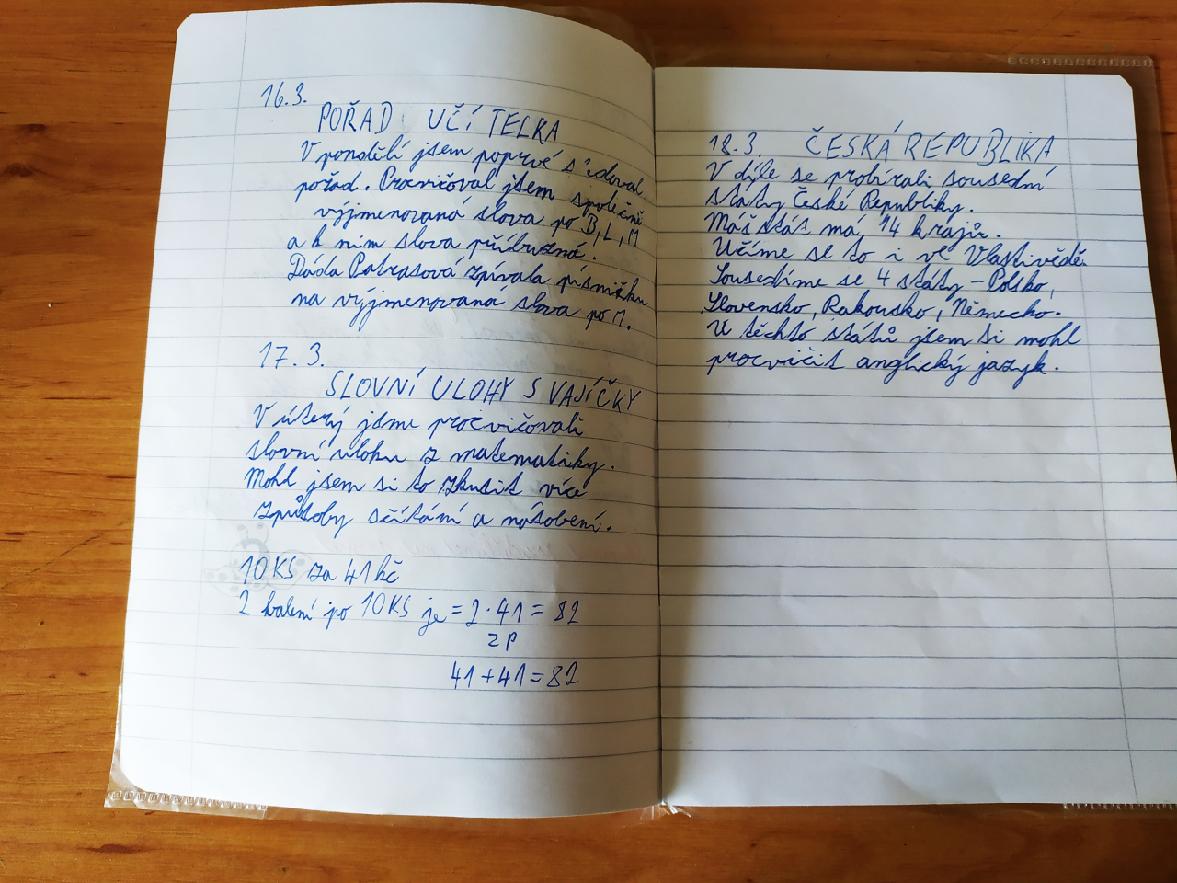 16.3.
POŘAD UČÍTELKA
V pondělí jsem poprvé sledoval
pořad. Procvičoval jsem společně
výjmenovaná slova po B, L, M
a k nim slova příbuzná.
Dáda Patrasová zpívala písničku
na výjmenovana slova po M.
17.3.
SLOVNÍ ULOHY S VAJÍČKY
V úterý jsme procvičovali
slovní úlohu z matematiky.
Mohl jsem si to zkusit více
způsoby sčítání a násobení.
10 KS za 41 kč
2 balení po 10 KS je = 2 · 41 = 82
ZP
41 + 41 = 82
18.3 ČESKÁ REPUBLIKA
V díle se probírali sousední
státy České Republiky.
Náš stát má 14 krajů.
Učíme se to i ve Vlastivědě
Sousedíme se 4 státy - Polsko,
Slovensko, Rakousko, Německo.
U těchto států jsem si mohl
procvičit anglický jazyk.